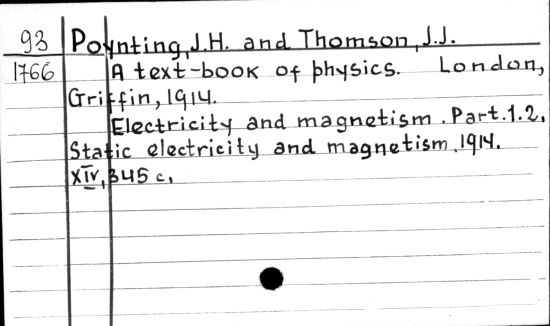 93 Poynting, J.H. and Thomson, J.J.
1766 A text-book of physics. London,
Griffin, 1914.
Electricity and magnetism. Part.1.2.
Static electricity and magnetism, 1914.
XIV, 345 c,